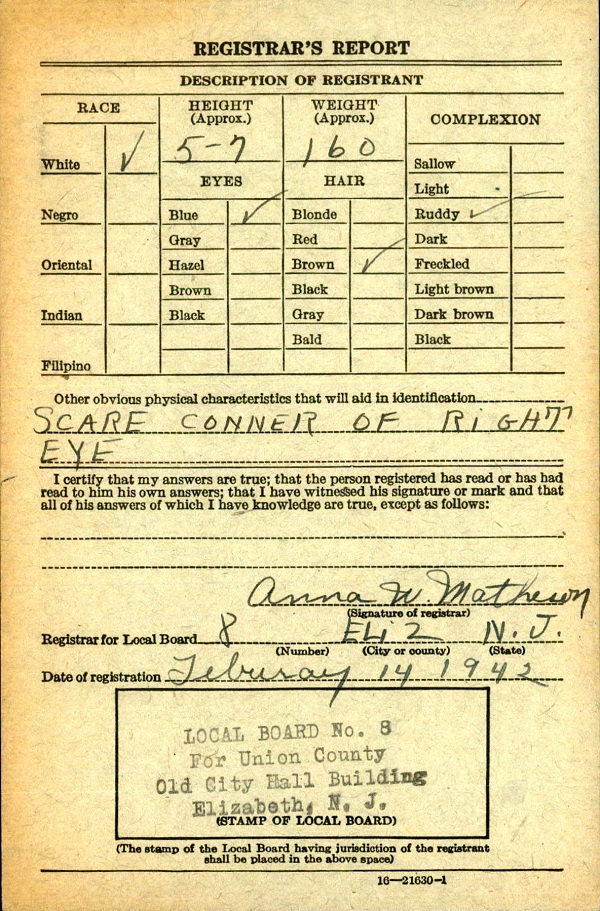 REGISTRAR'S REPORT
DESCRIPTION OF REGISTRANT
RACE
HEIGHT (Approx.)
WEIGHT (Approx.)
COMPLEXION
5-7
160
White ✓
Negro
Oriental
Indian
Filipino
EYES
Blue ✓
Gray
Hazel
Brown
Black
HAIR
Blonde
Red
Brown ✓
Black
Gray
Bald
Sallow
Light
Ruddy ✓
Dark
Freckled
Light brown
Dark brown
Black
Other obvious physical characteristics that will aid in identification
SCARE CONNER OF RiGHT
EYE
I certify that my answers are true; that the person registered has read or has had
read to him his own answers; that I have witnessed his signature or mark and that
all of his answers of which I have knowledge are true, except as follows:
Anna W. Mathewn
(Signature of registrar)
Registrar for Local Board 8 ELiZ N. J.
(Number) (City or county) (State)
Date of registration Feburay 14 1942
LOCAL BOARD No. 8
For Union County
Old City Hall Building
Elizabeth, N. J.
(STAMP OF LOCAL BOARD)
(The stamp of the Local Board having jurisdiction of the registrant
shall be placed in the above space)
16—21630-1